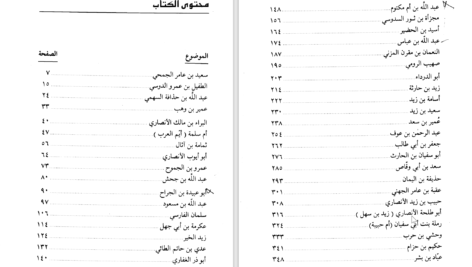 محتوى الكتاب
الموضوع الصفحة
سعيد بن عامر الجمحي ٧
الطفيل بن عمرو الدوسي ١٥
عبد الله بن حذافة السهمي ٢٤
عمير بن وهب ٣٣
البراء بن مالك الأنصاري ٤٠
أم سلمة ( أيم العرب ) ٤٧
ثمامة بن أثال ٥٦
أبو أيوب الأنصاري ٦٤
عمرو بن الجموح ٧٣
عبد الله بن جحش ٨٠
أبو عبيدة بن الجراح ٩٠
عبد الله بن مسعود ٩٧
سلمان الفارسي ١٠٦
عكرمة بن أبي جهل ١١٤
زيد الخير ١٢٤
عدي بن حاتم الطائي ١٣٢
أبو ذر الغفاري ١٤٠
عبد الله بن أم مكتوم ١٤٨
مجزأة بن ثور السدوسي ١٥٦
أسيد بن الحضير ١٦٤
عبد الله بن عباس ١٧٤
النعمان بن مقرن المزني ١٨٧
صهيب الرومي ١٩٥
أبو الدرداء ٢٠٣
زيد بن حارثة ٢١٤
أسامة بن زيد ٢٢٢
سعيد بن زيد ٢٣٠
عمير بن سعد ٢٣٨
عبد الرحمن بن عوف ٢٥٤
جعفر بن أبي طالب ٢٦٢
أبو سفيان بن الحارث ٢٧٦
سعد بن أبي وقاص ٢٨٥
حذيفة بن اليمان ٢٩٣
عقبة بن عامر الجهني ٣٠١
حبيب بن زيد الأنصاري ٣٠٨
أبو طلحة الأنصاري ( زيد بن سهل ) ٣١٦
رملة بنت أبي سفيان (أم حبيبة) ٣٢٤
وحشي بن حرب ٣٣٣
حكيم بن حزام ٣٤١
عبّاد بن بشر ٣٤٨